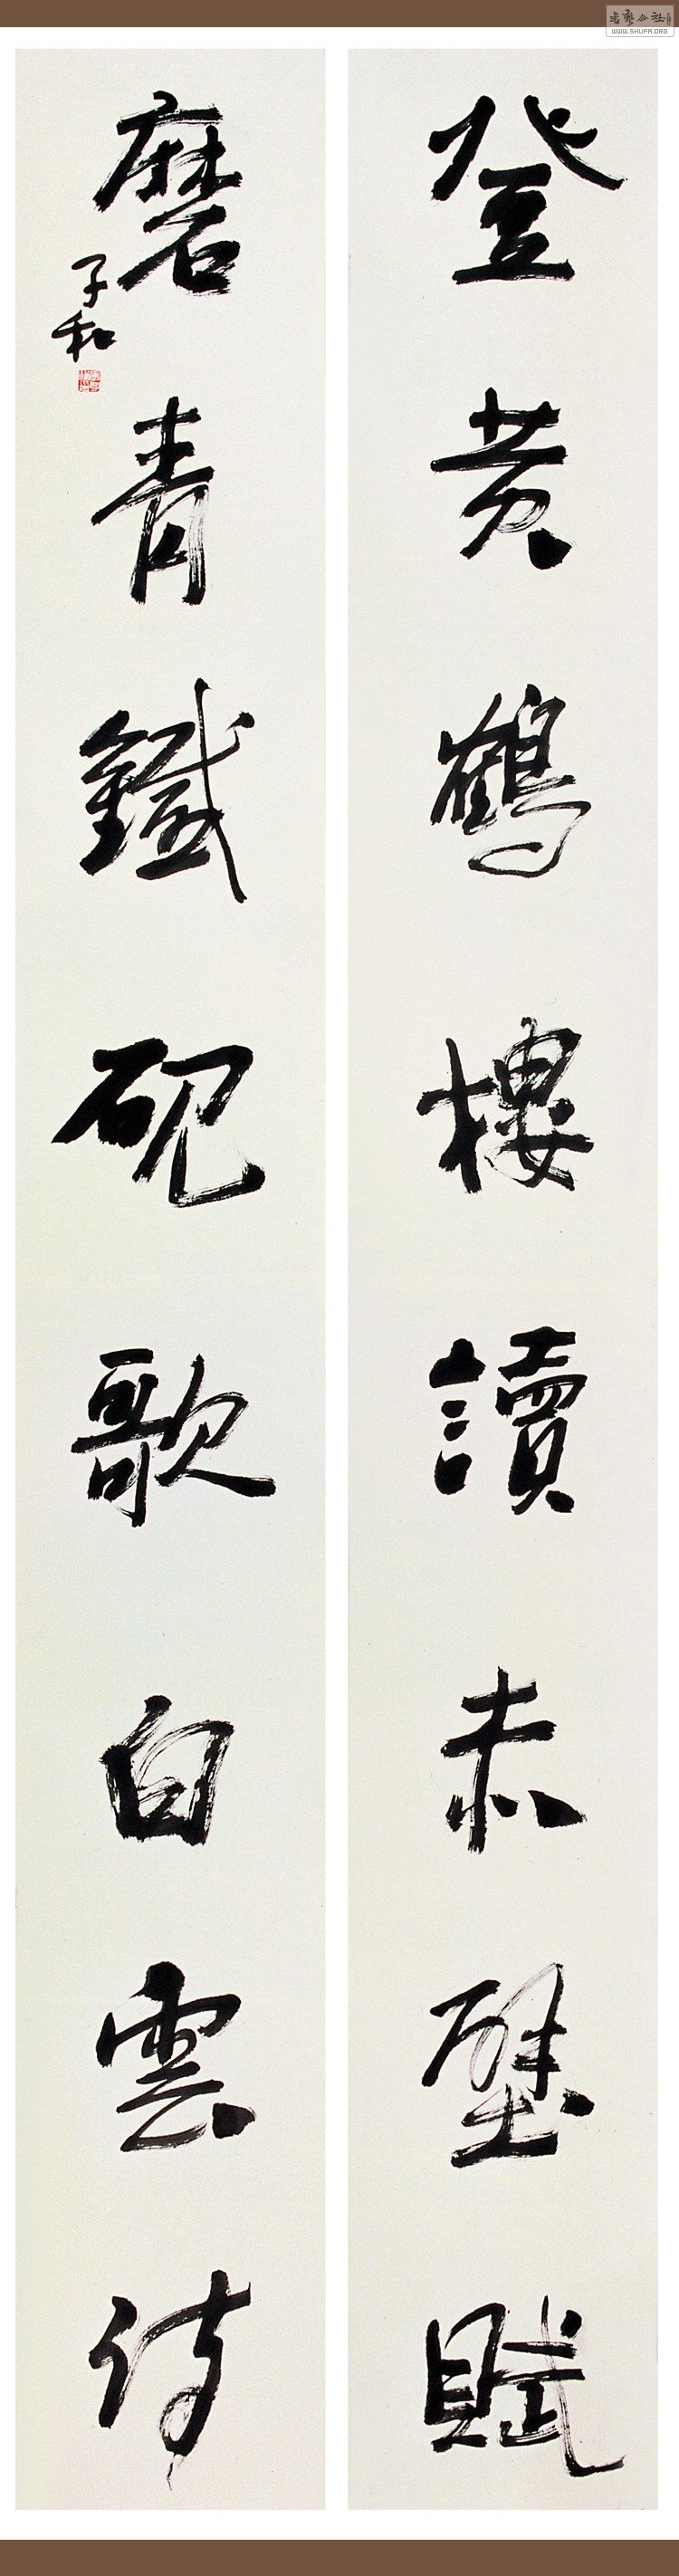 登黄鶴樓讀赤壁賦
磨青鐵硯歌白雲詩
子和
書藝公社
WWW.SHUFA.ORG